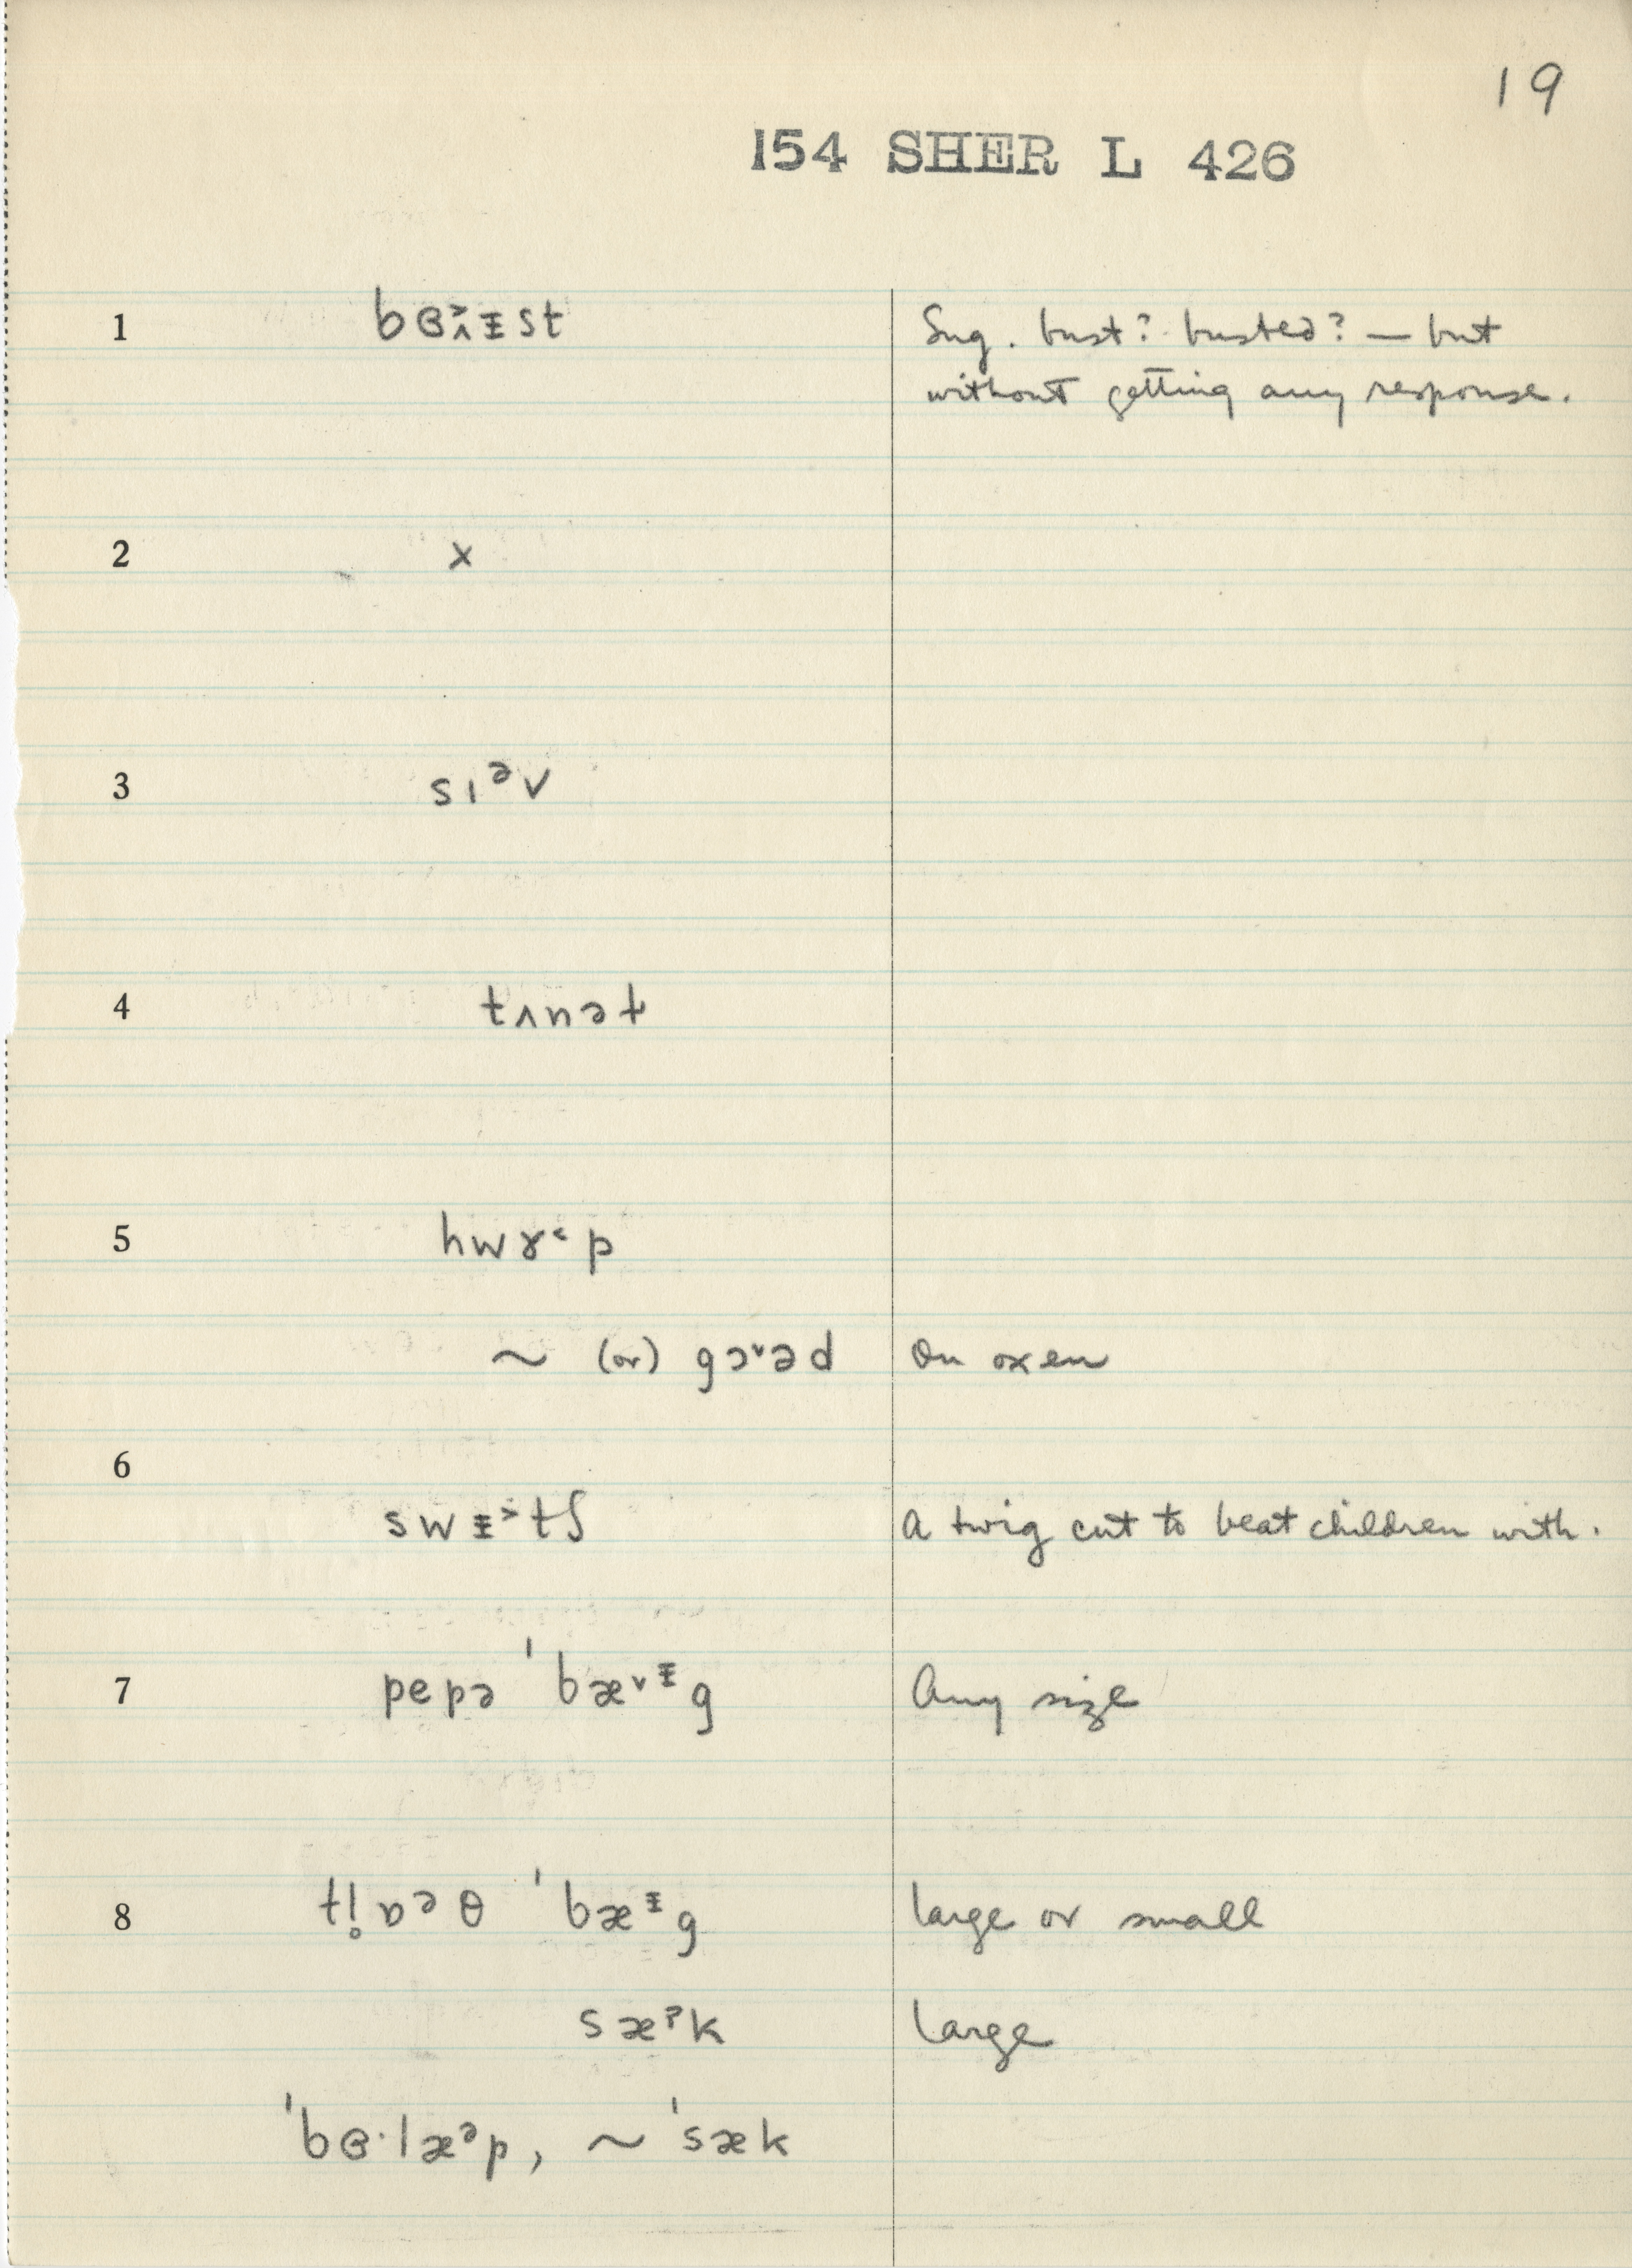 19
154 SHER L 426
1 bɞᵡᵻst Sug. bust? busted? — but
without getting any response.
2 x
3 sɪᵊv
4 tʌnət
5 hwɤ˂p
~ (or) gɔ˅əd On oxen
6
swᵻ˃tʃ A twig cut to beat children with.
7 pepə ˈbæ˅ᵻg Any size
8 tl̥ɒᵊθ ˈbæᵻg large or small
sæᵊk large
ˈbɞ·læᵊp, ~ ˈsæk